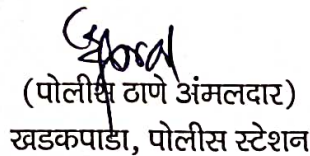 (पोलीस ठाणे अंमलदार)
खडकपाडा, पोलीस स्टेशन